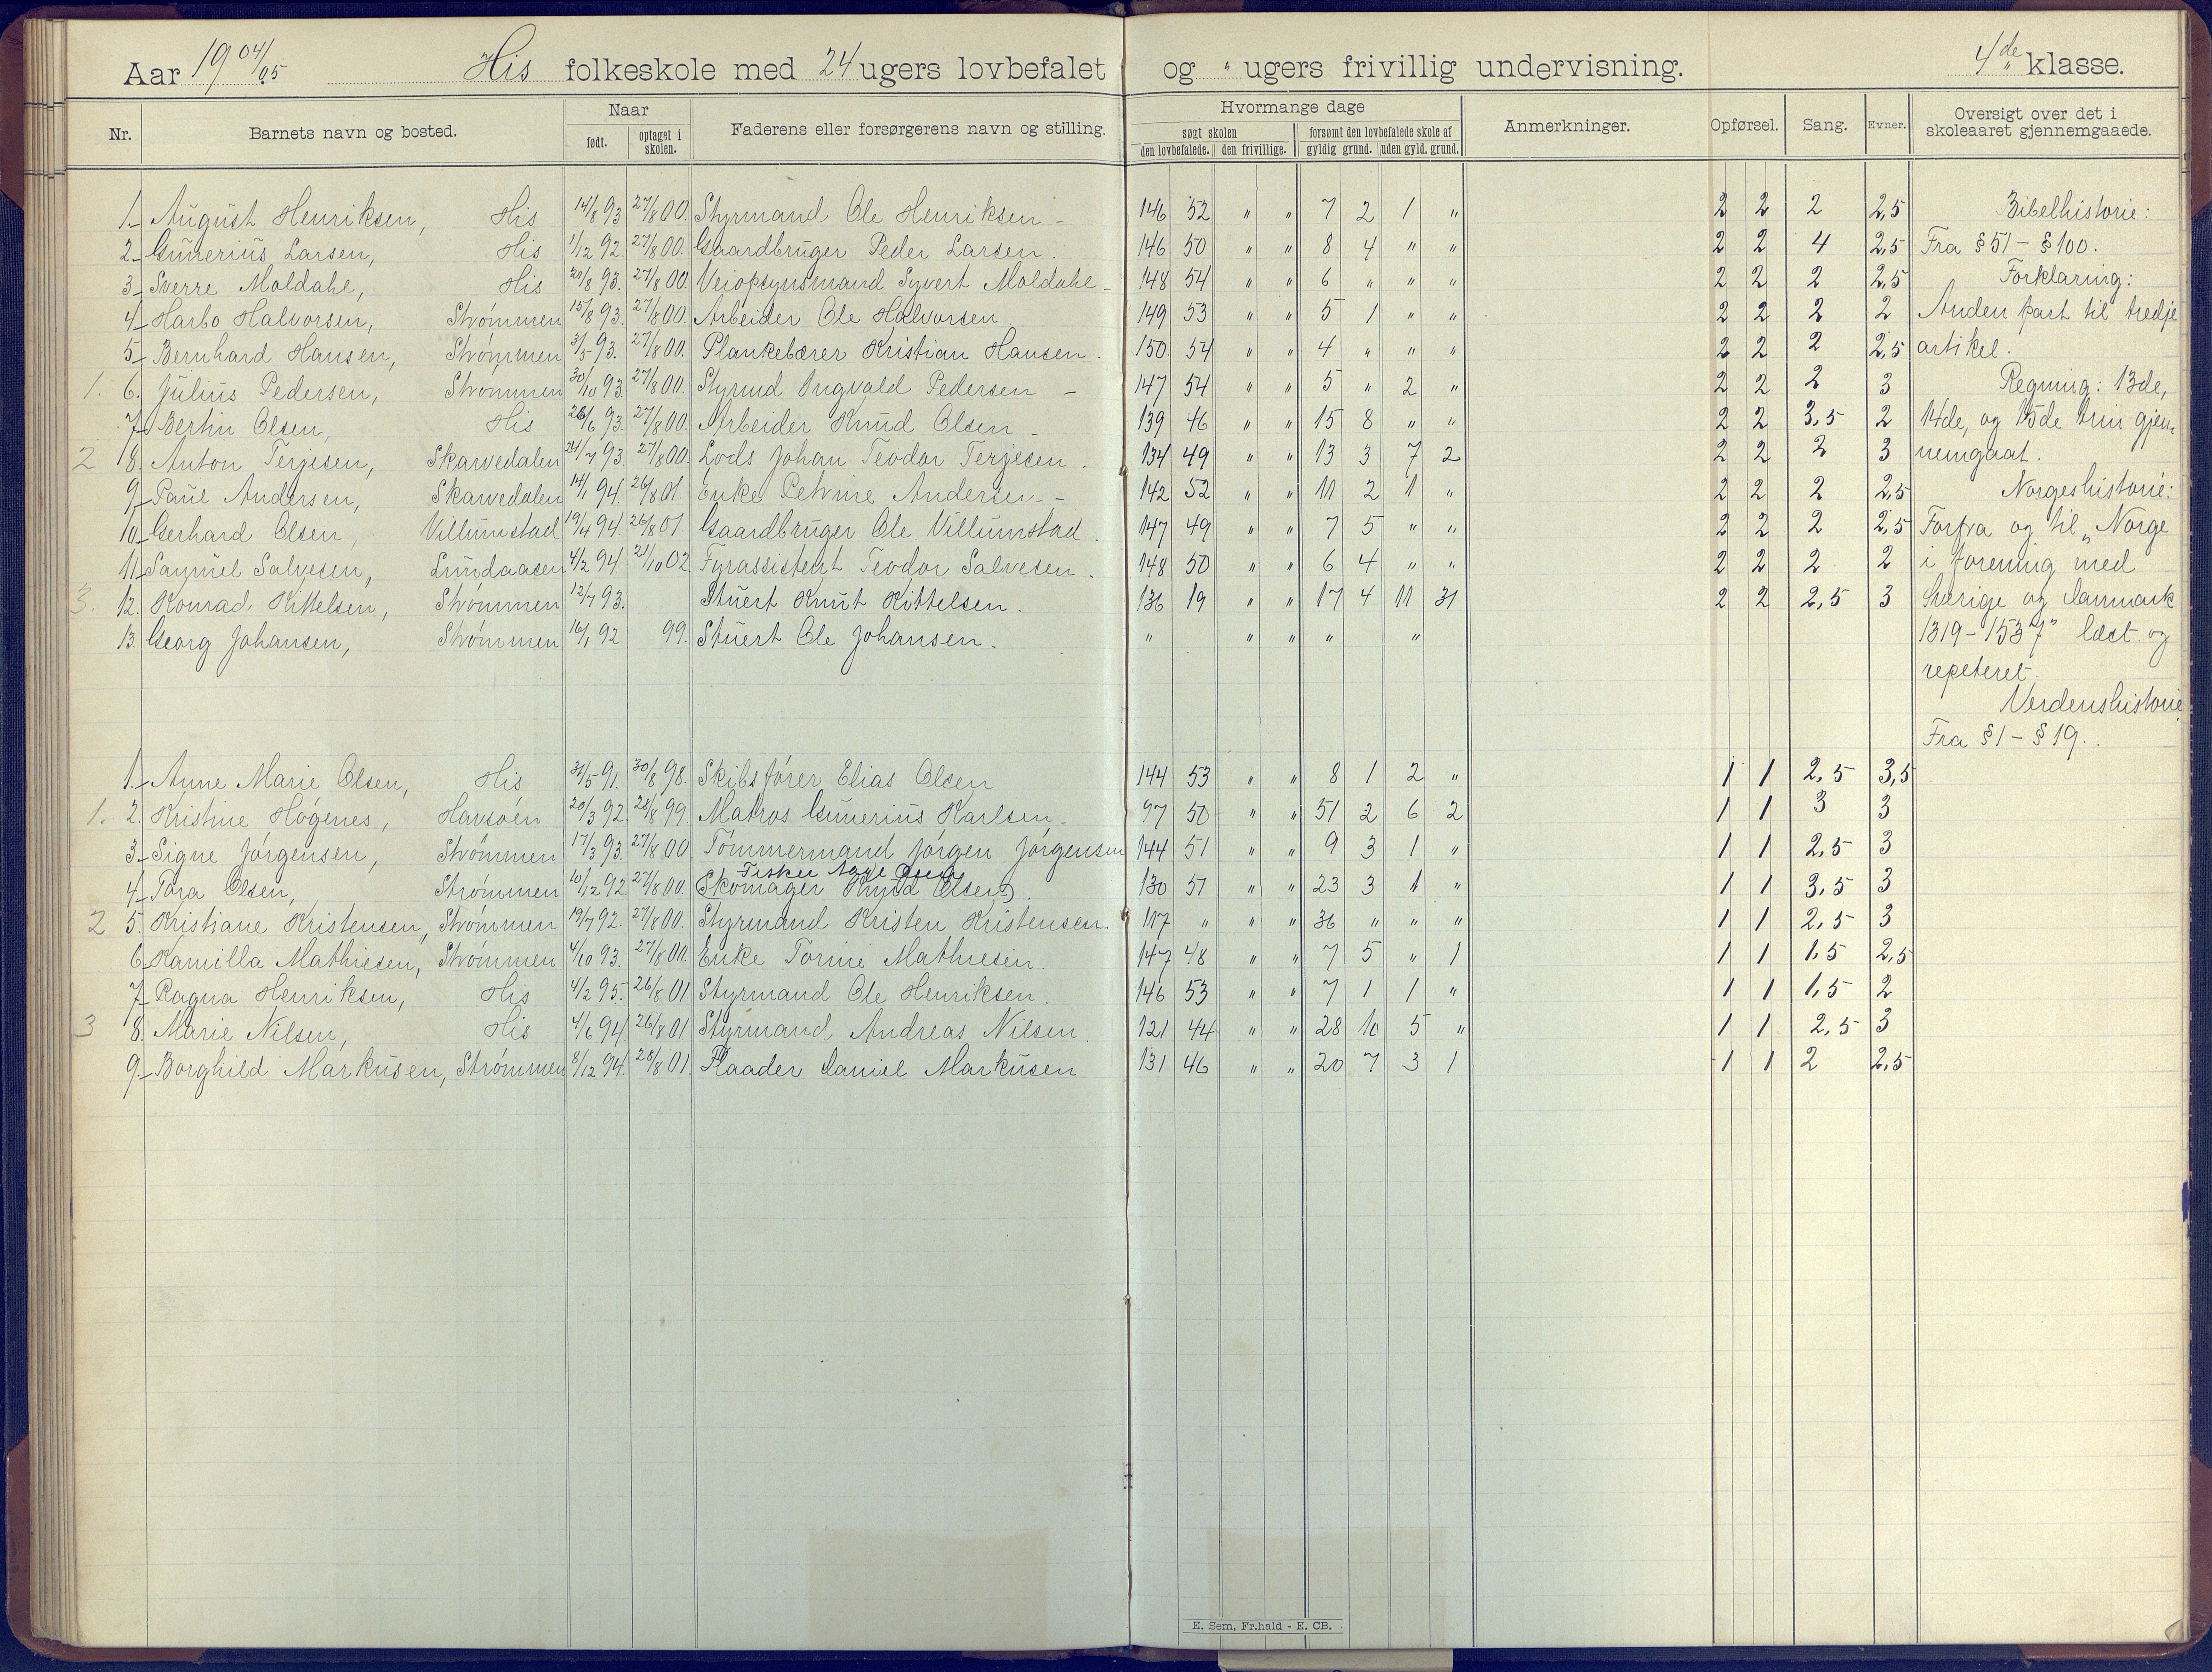 Aar 1904/05 His folkeskole med 24 ugers lovbefalet og " ugers frivillig undervisning. 4de klasse.
Nr. Barnets navn og bosted. Naar født. optaget i skolen. Faderens eller forsørgerens navn og stilling. Hvormange dage søgt skolen den lovbefalede. den frivillige. forsømt den lovbefalede skole af gyldig grund. uden gyld. grund. Anmerkninger. Opførsel. Sang. Evner. Oversigt over det i skoleaaret gjennemgaaede.
1. August Henriksen, His 14/8 93 27/8 00. Styrmand Ole Henriksen 146 52 " " 7 2 1 " 2 2 2 2,5 Bibelhistorie:
2. Gunerius Larsen, His 1/12 92. 27/8 00. Gaardbruger Peder Larsen. 146 50 " " 8 4 " " 2 2 4 2,5 Fra § 51 - § 100.
3. Sverre Moldahl, His 27/8 00. Veiopsynsmand Syvert Moldahl 148 54 " " 6 " " " 2 2 2 2,5 Forklaring:
4. Harbo Halvorsen, Strømmen 15/8 93. 27/8 00. Arbeider Ole Halvorsen 149 53 " " 5 1 " " 2 2 2 2 Anden part til tredje
5. Bernhard Hansen, Strømmen 3/5 93. 27/8 00. Plankebærer Kristian Hansen. 150 54 " " 4 " " " 2 2 2 2,5 artikel.
1. 6. Julius Pedersen, Strømmen 30/10 93. 27/8 00. Styrmd Ingvald Pedersen 147 54 " " 5 " 2 " 2 2 2 3 Regning: 13de,
7. Bertin Olsen, His 26/6 93. 27/8 00. Arbeider Knud Olsen 139 46 " " 15 8 " " 2 2 3,5 2 14de, og 15de trin gjen-
2 8. Anton Terjesen, Skarvedalen 24/7 93. 27/8 00. Lods Johan Teodor Terjesen. 134 49 " " 13 3 7 2 2 2 2 3 nemgaat.
9. Paul Andersen, Skarvedalen 14/1 94. 26/8 01. Enke Petrine Andersen. 142 52 " " 11 2 1 " 2 2 2 2,5 Norgeshistorie:
10. Gerhard Olsen, Villumstad 94. 26/8 01. Gaardbruger Ole Villumstad. 147 49 " " 7 5 " " 2 2 2 2,5 Forfra og til „Norge
11. Samuel Salvesen, Lundaasen 4/2 94. 21/10 02 Fyrassistent Teodor Salvesen. 148 50 " " 6 4 " " 2 2 2 2 i forening med
3. 12. Konrad Kittelsen, Strømmen 12/7 93. Stuert Knut Kittelsen. 136 19 " " 17 4 11 31 2 2 2,5 3 Sverige og Danmark
13. Georg Johansen, Strømmen 16/1 92 99. Stuert Ole Johansen. " " " " " 1319-1537" læst og
repeteret.
Verdenshistorie
Fra § 1 - § 19.
1. Anne Marie Olsen, His 31/5 91. 30/8 98. Skibsfører Elias Olsen 144 53 " " 8 1 2 " 1 1 2,5 3,5
1. 2. Kristine Høgenes, Havsøen 20/3 92. 28/8 99 Matros Gunerius Karlsen. 97 50 " " 51 2 6 2 1 1 3 3
3. Signe Jørgensen, Strømmen 17/3 93. 27/8 00 Tømmermand Jørgen Jørgensen 144 51 " " 9 3 1 " 1 1 2,5 3
Fisker
4. Tora Olsen, Strømmen 10/12 92 27/8 00. (Skomager Knud Olsen). 130 51 " " 23 3 1 " 1 1 3,5 3
2 5. Kristiane Kristensen, Strømmen 19/7 92. 27/8 00. Styrmand Kristen Kristensen. 117 " " " 36 " " " 1 1 2,5 3
6. Kamilla Mathiesen, Strømmen 4/10 93. 27/8 00. Enke Torine Mathiesen. 147 48 " " 7 5 " 1 1 1 1,5 2,5
7. Ragna Henriksen, His 4/2 95. 26/8 01 Styrmand Ole Henriksen. 146 53 " " 7 1 1 " 1 1 1,5 2
3 8. Marie Nilsen, His 4/6 94. 26/8 01. Styrmand Andreas Nilsen. 121 44 " " 28 10 5 " 1 1 2,5 3
9. Borghild Markusen, Strømmen 8/12 94. 28/8 01. Flaader Daniel Markusen 131 46 " " 20 7 3 1 1 1 2 2,5
E. Sem, Fr.hald - E. CB.